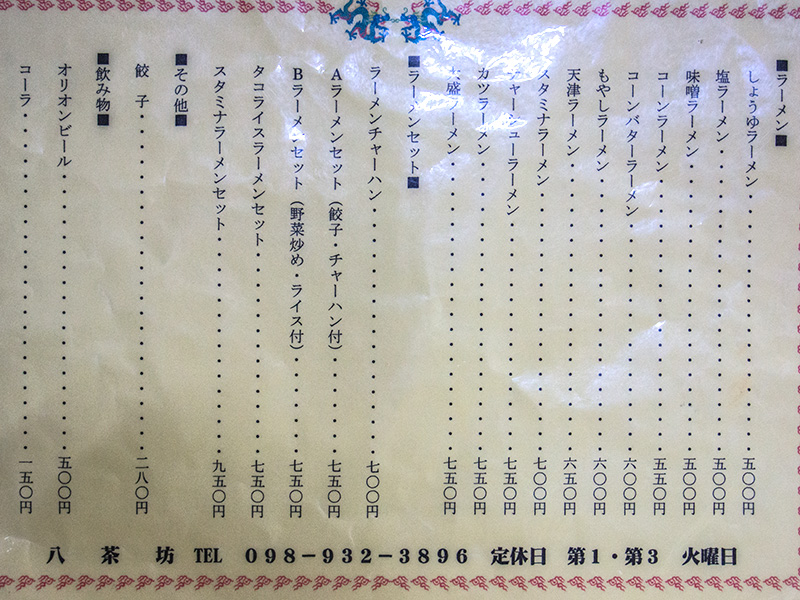 ■ラーメン■
しょうゆラーメン・・・・・・・・・・・・・・・・・・五〇〇円
塩ラーメン・・・・・・・・・・・・・・・・・・・・五〇〇円
味噌ラーメン・・・・・・・・・・・・・・・・・・・五〇〇円
コーンラーメン・・・・・・・・・・・・・・・・・・五五〇円
コーンバターラーメン・・・・・・・・・・・・・・・・六〇〇円
もやしラーメン・・・・・・・・・・・・・・・・・・六〇〇円
天津ラーメン・・・・・・・・・・・・・・・・・・・六五〇円
スタミナラーメン・・・・・・・・・・・・・・・・・七〇〇円
チャーシューラーメン・・・・・・・・・・・・・・・・七五〇円
カツラーメン・・・・・・・・・・・・・・・・・・・七五〇円
大盛ラーメン・・・・・・・・・・・・・・・・・・・七五〇円
■ラーメンセット■
ラーメンチャーハン・・・・・・・・・・・・・・・・七〇〇円
Aラーメンセット（餃子・チャーハン付）・・・・七五〇円
Bラーメンセット（野菜炒め・ライス付）・・・・七五〇円
タコライスラーメンセット・・・・・・・・・・・・・・七五〇円
スタミナラーメンセット・・・・・・・・・・・・・・・九五〇円
■その他■
餃　子・・・・・・・・・・・・・・・・・・・・・・二八〇円
■飲み物■
オリオンビール・・・・・・・・・・・・・・・・・・五〇〇円
コーラ・・・・・・・・・・・・・・・・・・・・・・一五〇円
八　茶　坊　TEL　098－932－3896　定休日　第1・第3　火曜日